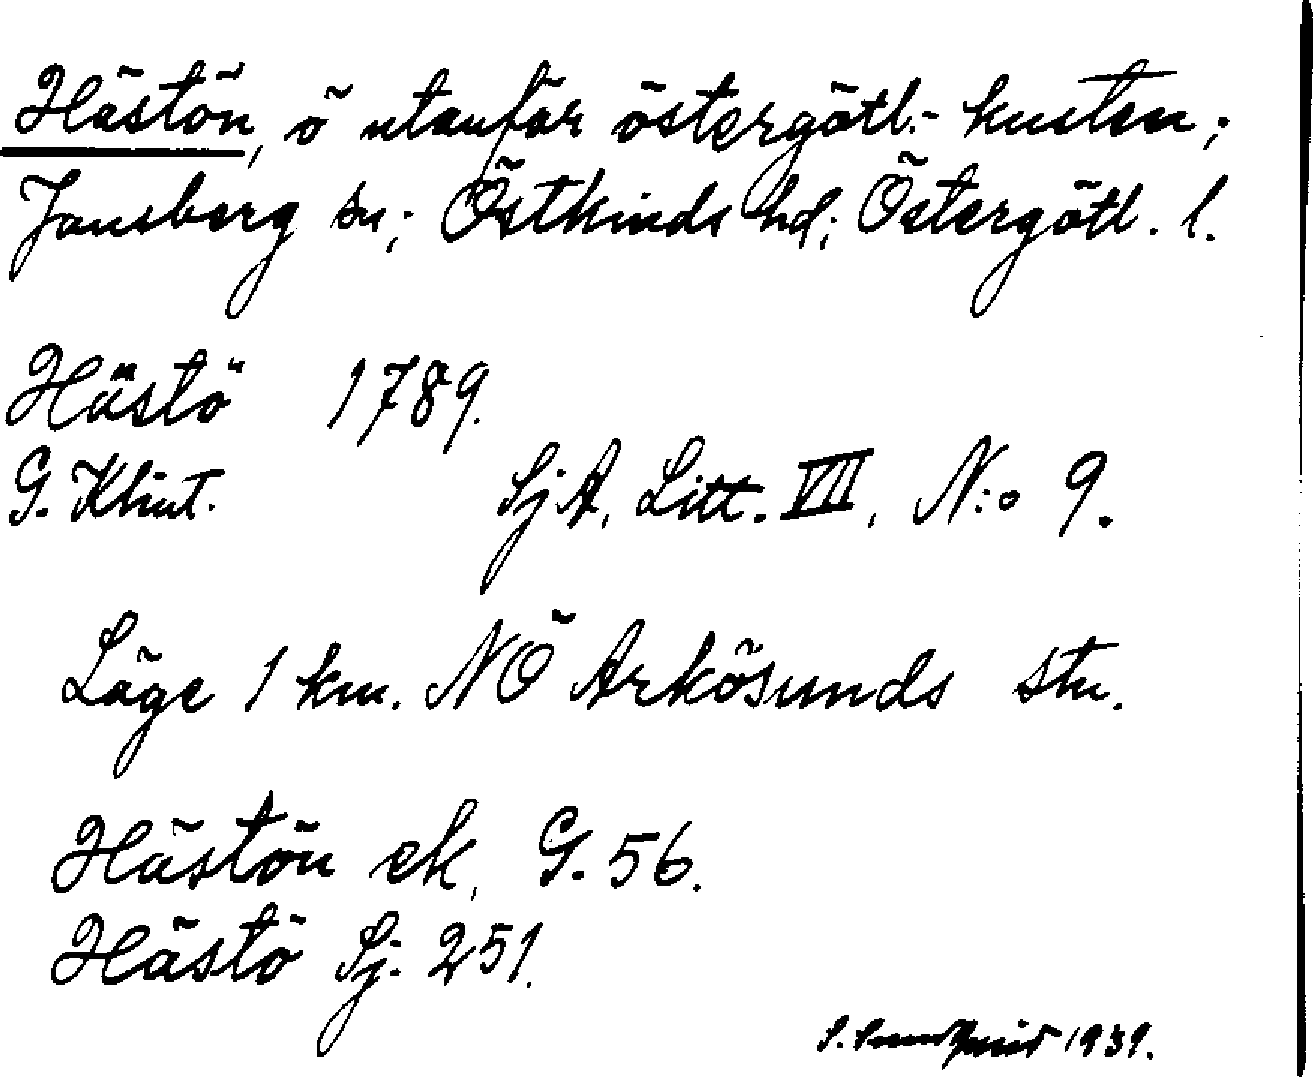 Hästön, ö utanför östergötl.- kusten;
Jonsberg sn; Östkinds hd; Östergötl. l.
Hästö 1789.
G. Klint. SjA, Litt. VII, N:o 9.
Läge 1 km. NÖ Arkösunds stn.
Hästön ek, G. 56.
Hästö Sj. 251.
1939.